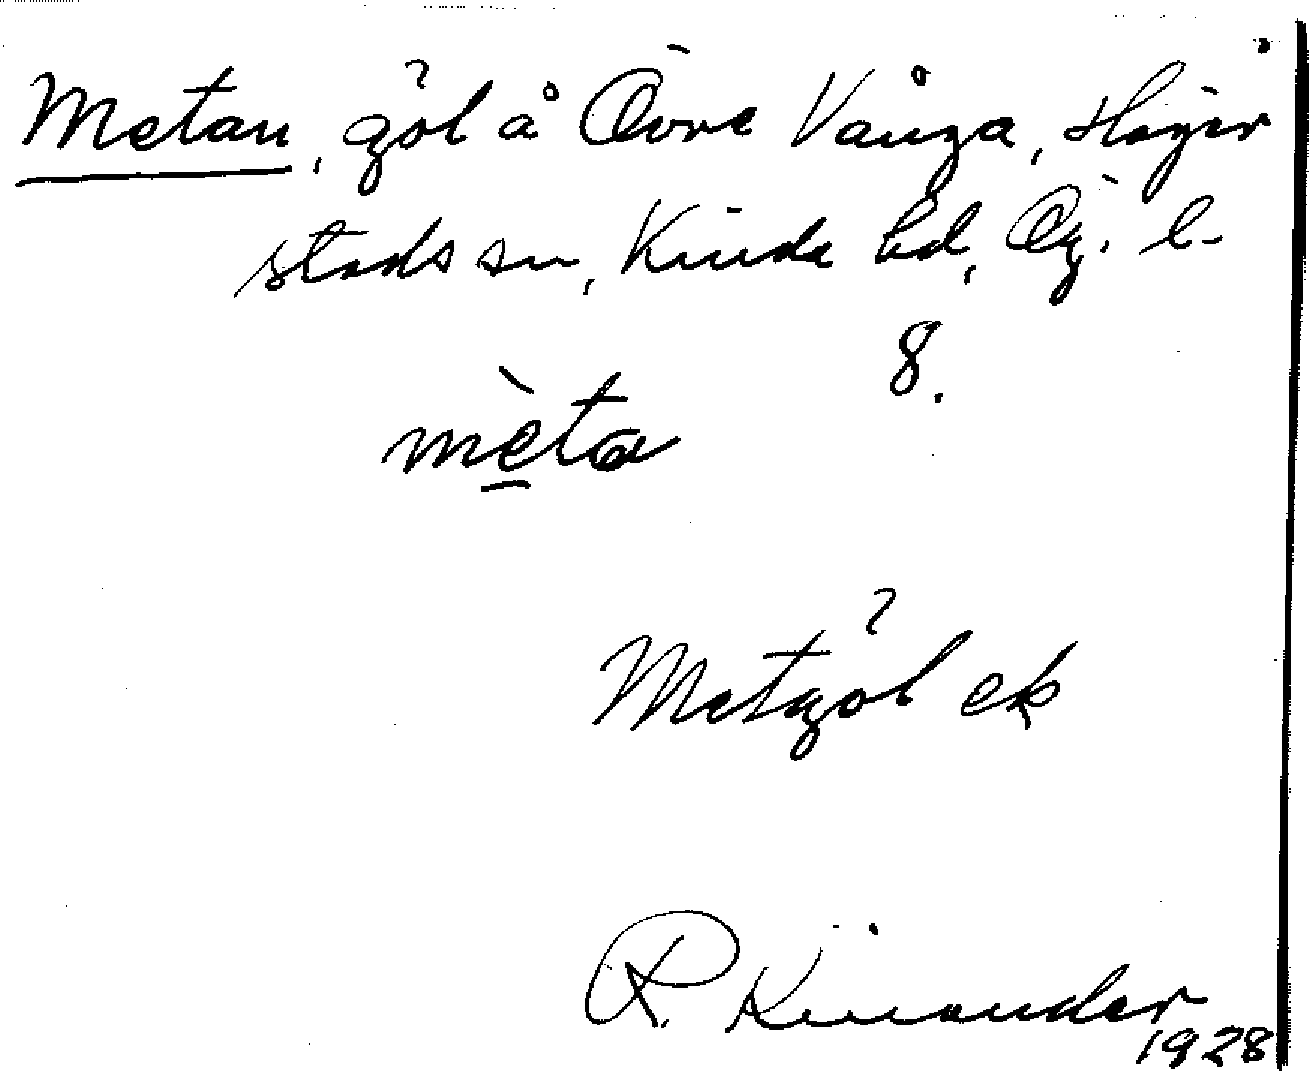 Metan, göl å Övre Vånga, Hägerstads sn, Kinda hd, Ög. l.
8.
mèta
Metgöl ek
R Kinander
1928